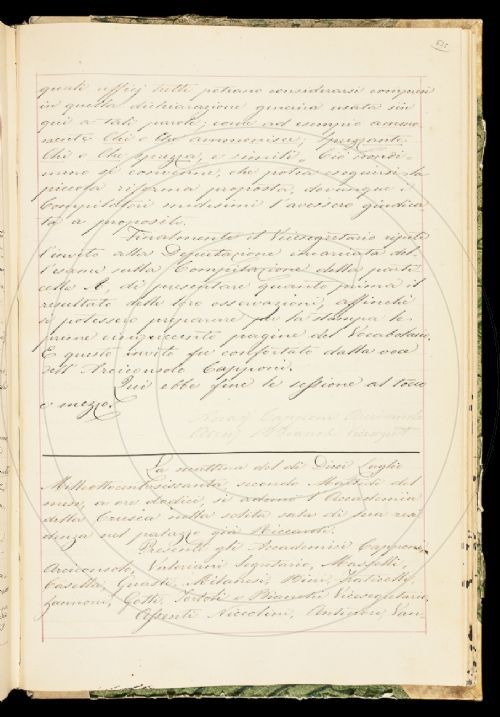 quali uffizj tutti potranno considerarsi compresi
in questa dichiarazione generica usata sin
qui a tali parole; come ad esempio ammo-
nente Chi o Che ammonisce; Sprezzante
Chi o Che sprezza, e simili. Ciò nondi-
meno si convenne, che potea eseguirsi la
piccola riforma proposta, dovunque i
Compilatori medesimi l'avessero giudica
ta a proposito.
Finalmente il Vicesegretario ripetè
l'invito alla Deputazione incaricata del-
l'esame sulla Compilazione della parti
cella A, di presentare quanto prima il
resultato delle loro osservazioni, affinchè
si potessero preparare per la stampa le
prime cinquecento pagine del Vocabolario.
E questo invito fu confortato dalla voce
dell'Arciconsolo Capponi.
Qui ebbe fine la sessione al tocco
e mezzo.
Capponi Arciconsolo
La mattina del dì Dieci Luglio
Milleottocentosessanta, secondo Martedì del
mese, a ore dodici, si adunò l'Accademia
della Crusca nella solita sala di sua resi
denza nel palazzo già Riccardi.
Presenti gli Accademici Capponi,
Arciconsolo, Valeriani Segretario, Maffei,
Casella, Guasti, Milanesi, Bini,
Zannoni, Gotti, Tortoli e Bianchi Vicesegretario.
Assenti Niccolini, Antinori, Van-